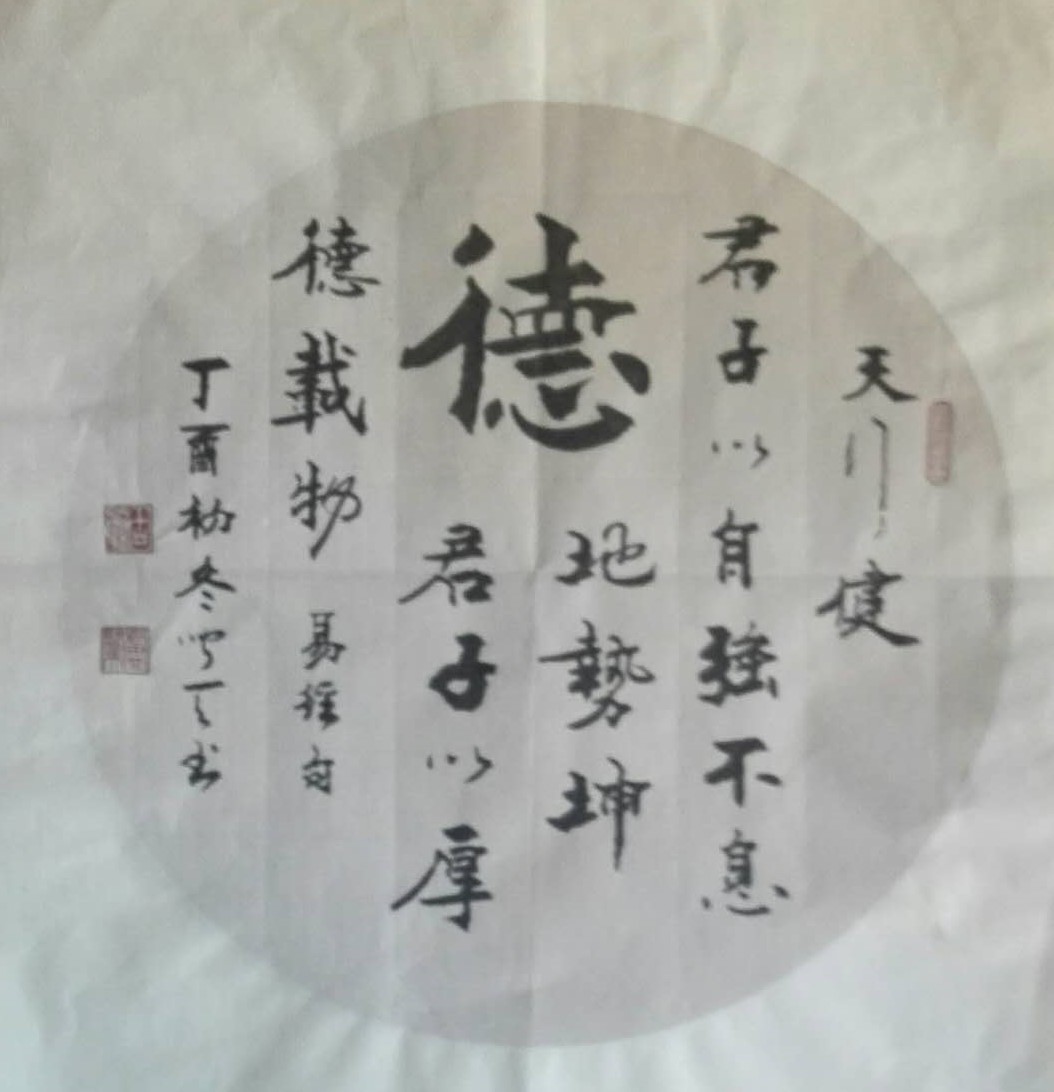 天行健
君子以自強不息
德
地勢坤
君子以厚
德載物 易經句
丁酉 冬 书